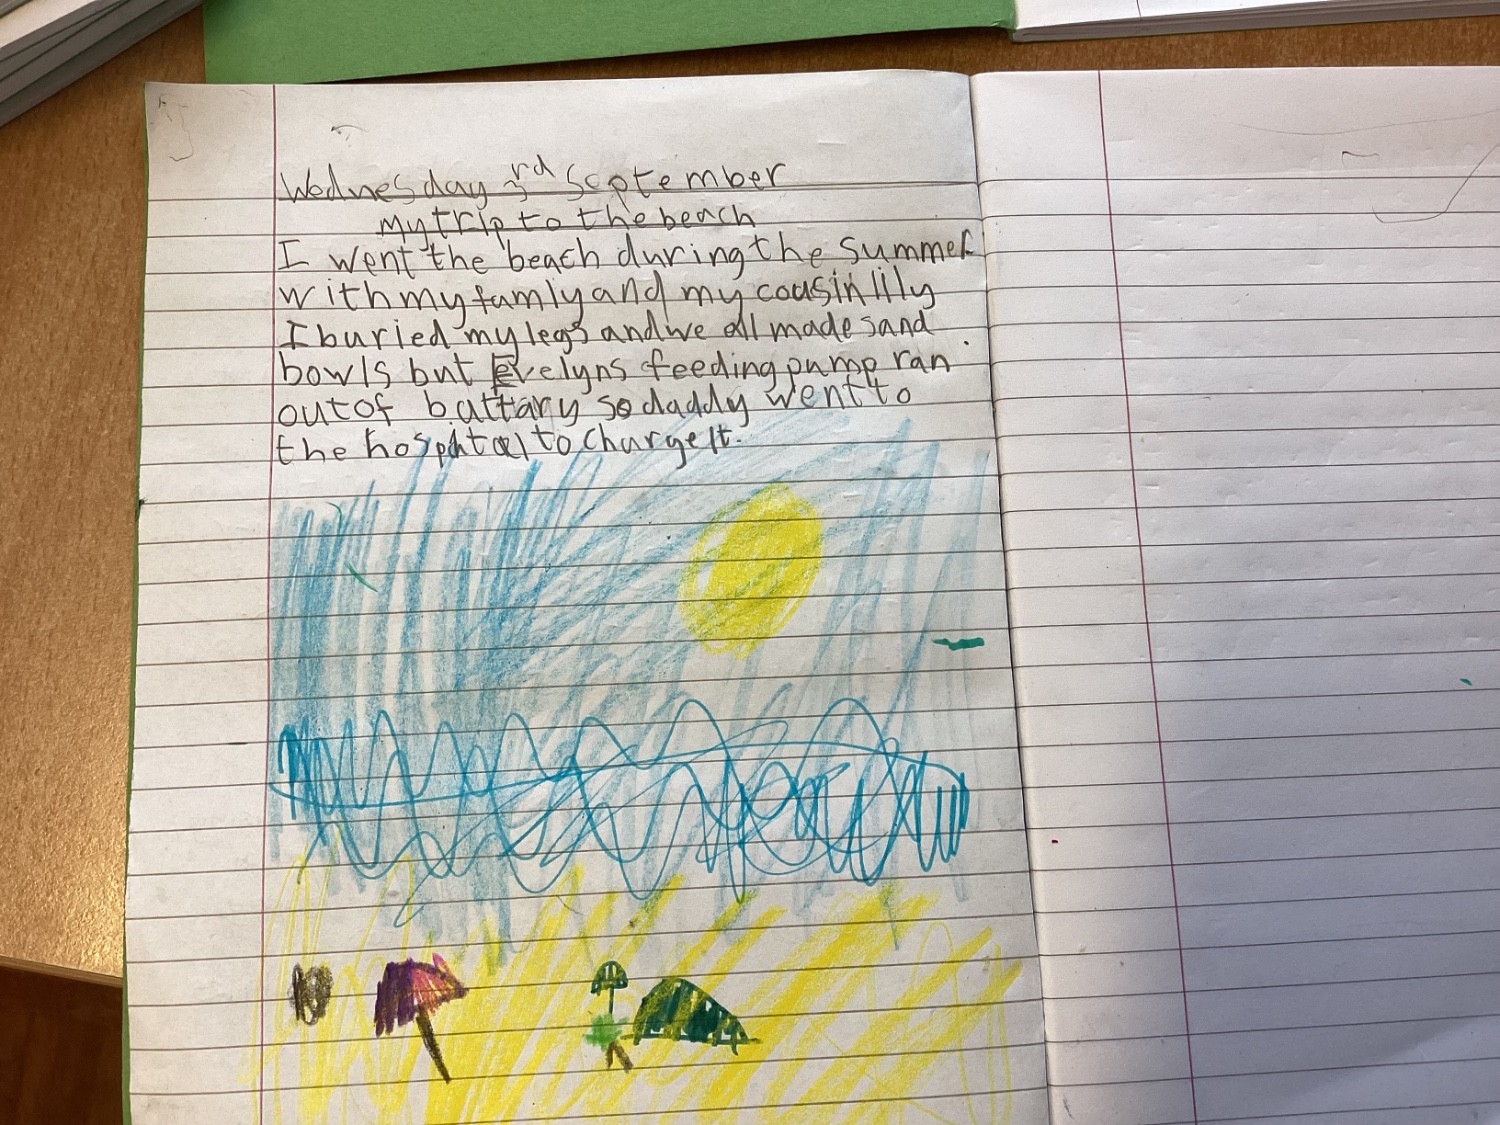 Wednesday 3rd September
my trip to the beach
I went the beach during the summer
with my famly and my cousin lily
I buried my legs and we all made sand
bowls but Evelyns feeding pump ran
out of battary so daddy went to
the hospital to charge It.